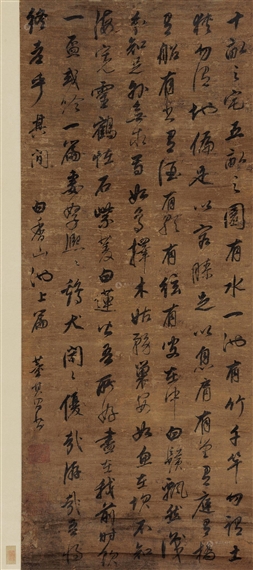 十畝之宅五畝之園有水一池有竹千竿勿謂土
狹勿謂地偏足以容膝足以息肩有堂有庭有橋
有船有書有酒有歌有絃有叟在中白鬚飄然識
分知足外無求焉如鳥擇木姑務巢安如魚在坎不知
海寬靈鶴怪石紫菱白蓮皆吾所好盡在我前時飲
一盃或吟一篇妻孥熙々雞犬閑々優哉游哉吾將
終老乎其間 白香山池上篇 董其昌